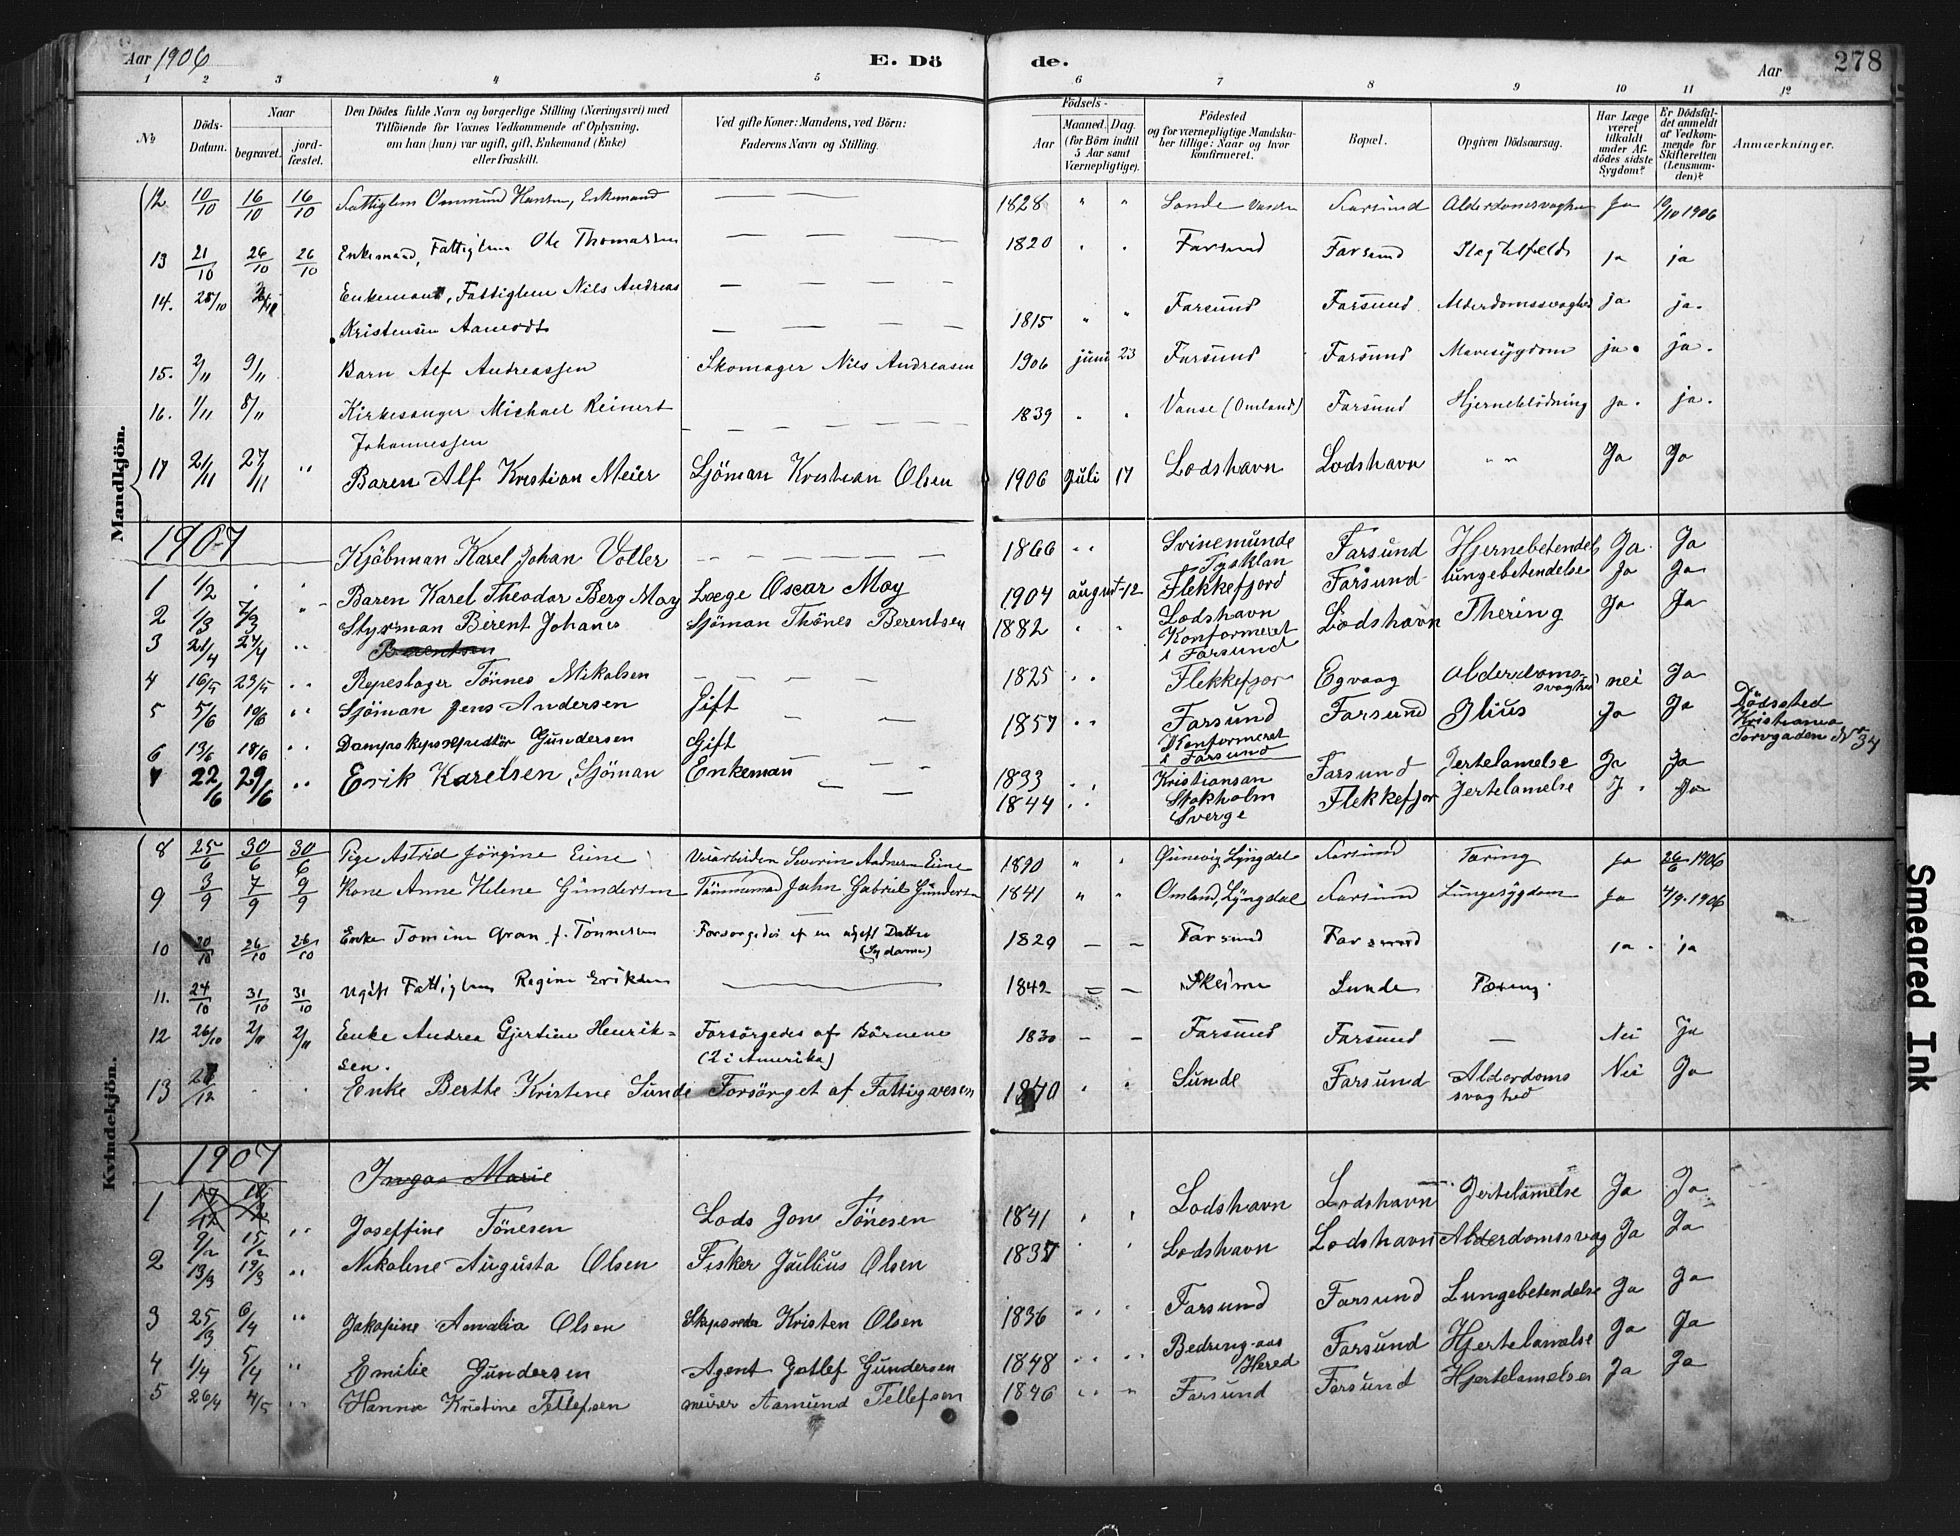 Aar 1906 E. Dö
1 2 3 4 5
No Döds-Datum. Naar begravet. jord-fæstet. Den Dödes fulde Navn og borgerlige Stilling (Næringsvei) med Tilföiende for Voxnes Vedkommende af Oplysning, om han (hun) var ugift, gift, Enkemand (Enke) eller fraskilt. Ved gifte Koner: Mandens, ved Börn: Faderens Navn og Stilling.
Mandkjön.
12. 10/10 16/10 16/10 Fattiglem Ommund Hansen, Enkemand — —
13 21/10 26/10 26/10 Enkemand, Fattiglem Ole Thomassen — — —
14. 28/10 Enkemand, Fattiglem Nils Andreas — — —
Kristensen Aamodt — — —
15. 2/11 9/11 Barn Alf Andreassen Skomager Nils Andreasen
16. 1/11 8/11 Kirkesanger Michael Reinert
Johannessen — — — —
17 21/11 27/11 " Baren Alf Kristian Meier Sjöman Kristian Olsen
1907 Kjöbman Karel Johan Voller — — — —
1 1/2 " " Baren Karel Theodor Berg Moy Læge Oscar Moy
2 1/3 7/3 " Styrman Berent Johans Sjöman Thönes Berentsen
3 21/4 27/4 " Berentsen
4 16/5 23/5 " Repeslager Tönnes Mikalsen — — — —
5 5/6 10/6 " Sjöman Jens Andersen Gift — —
6 13/6 18/6 " Dampskipsexpedtör Gundersen Gift
7 22/6 29/6 " Erik Karelsen, Sjöman Enkeman — —
Kvindekjön.
8 25/6 30/6 30/6 Pige Astrid Jörgine Eine Veiarbeider Severin Aadnesen Eine
9 3/9 7/9 9/9 Kone Anne Helene Gundersen Tömmermand Jahn Gabriel Gundersen
10 20/10 26/10 26/10 Enke Tomine Gran f. Tönnesen Forsørgedes af en ugift Datter
(Sydame)
11. 24/10 31/10 31/10 Ugift Fattiglem Regine Eriksen —
12 26/10 2/11 2/11 Enke Andrea Gjertine Henrik= Forsörgedes af Börnene
sen. (2 i Amerika)
13 /12 " " Enke Berthe Kristine Sunde Forsörget af Fattigvesen
1907 Ingas Marie
1 17/12 " Joseffine Tönesen Lods Jon Tönesen
9/2 15/2
2 13/3 19/3 " Nikoline Augusta Olsen Fisker Jullius Olsen
3 25/3 6/4 " Jakopine Amalia Olsen Skipsreder Kristen Olsen
4 1/4 5/4 " Emilie Gundersen Agent Gotlef Gundersen
5 26/4 4/5 " Hanna Kristine Tellefsen murer Aamund Tellefsen
de. Aar 278
6 7 8 9 10 11 12
Födsels- Aar Maaned. Dag. (for Börn indtil 5 Aar samt Værnepligtige). Födested og for værnepligtige Mandskaber tillige: Naar og hvor konfirmeret. Bopæl. Opgiven Dödsaarsag. Har Læge været tilkaldt under Afdödes sidste Sygdom? Er Dödsfaldet anmeldt af Vedkommende for Skifteretten (Lensmanden)? Anmærkninger.
1828 " " Sande Vanse Farsund Alderdomssvaghed Ja 10/10 1906
1820 " " Farsund Farsund Slagtilfelde ja ja
1815 " " Farsund Farsund Alderdomssvaghed ja ja.
1906 juni 23 Farsund Farsund Mavesygdom ja. ja.
1839 " " Vanse (Omland) Farsund Hjerneblödning ja. ja.
1906 Juli 17 Lodshavn Lodshavn " " Ja Ja
1866 " " Svinemunde Farsund Hjernebetendels Ja. Ja
i Tysklan
1904 august 12 Flekkefjord Farsund lungebetendelse Ja Ja
1882 " " Lodshavn Lodshavn Thering Ja Ja
Konformeret
i Farsund
1825 " " Flekkefjor Egvaag Alderdoms nei Ja
svaghed
1857 " " Farsund Farsund Ilius Ja Ja Dödssted
Kristiania
Torvgaden No 34
Konformeret
i Farsund
1833 " " Kristiansan Farsund Jertelamelse Ja Ja
1844 " " Stokholm Flekkefjor Jertelamelse J. Ja
Sverge
1890 " " Qvinevig Lyngdal Farsund Tæring ja 26/6 1906
1841 " " Omland, Lyngdal Farsund Lungesygdom Ja 4/9. 1906
1829 — — Farsund Farsund ja. ja
1842 — — Skeime Sunde Tæring.
1830 — — Farsund Farsund — Nei Ja
1840 " " Sunde Farsund Alderdoms Nei Ja
svaghed
1841 " " Lodshavn Lodshavn Jertelamelse Ja Ja
1837 " " Lodshavn Lodshavn Alderdomssvag Ja Ja
1836 " " Farsund Farsund Lungebetendelse Ja Ja
1848 " " Bedring-aas Farsund Hjertelamelse Ja Ja
Hered
1846 " " Farsund Farsund Hjertelamelser Ja Ja
Smeared Ink